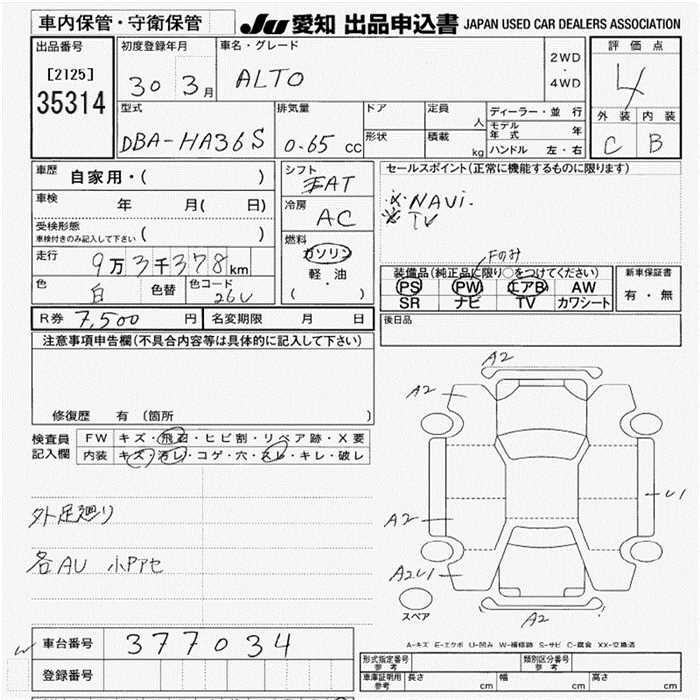 車内保管・守衛保管
JU 愛知 出品申込書 JAPAN USED CAR DEALERS ASSOCIATION
出品番号
[2125]
35314
初度登録年月
30 3月
車名・グレード
ALTO
2WD
・
4WD
評価点
4
外装 内装
C B
型式
DBA-HA36S
排気量
0.65 cc
ドア
形状
定員 人
積載 kg
ディーラー・並行
モデル年式 年
ハンドル 左・右
車歴 自家用・( )
車検 年 月( 日)
受検形態
車検付きのみ記入して下さい ( )
走行 9万3千378km
色 白 色替 色コード 26U
シフト
FAT
冷房
AC
燃料
ガソリン
軽・油
( ・ )
セールスポイント(正常に機能するものに限ります)
※NAVi.
※TV
Fのみ
装備品(純正品に限り○をつけてください)
PS PW エアB AW
SR ナビ TV カワシート
新車保証書
有・無
R券 7,500 円 名変期限 月 日
後日品
注意事項申告欄(不具合内容等は具体的に記入して下さい)
修復歴 有(箇所 )
検査員記入欄
FW キズ・飛石・ヒビ割・リペア跡・X要
内装 キズ・汚レ・コゲ・穴・スレ・キレ・破レ
外足廻り
各AU 小Pアセ
A2
A2
A2
A2U1
A2
U1
スペア
A-キズ E-エクボ U-凹み W-補修跡 S-サビ C-腐食 XX-交換済
車台番号 377034
登録番号
形式指定番号 参考
類別区分番号 参考
車庫証明用 参考 長さ cm 幅 cm 高さ cm